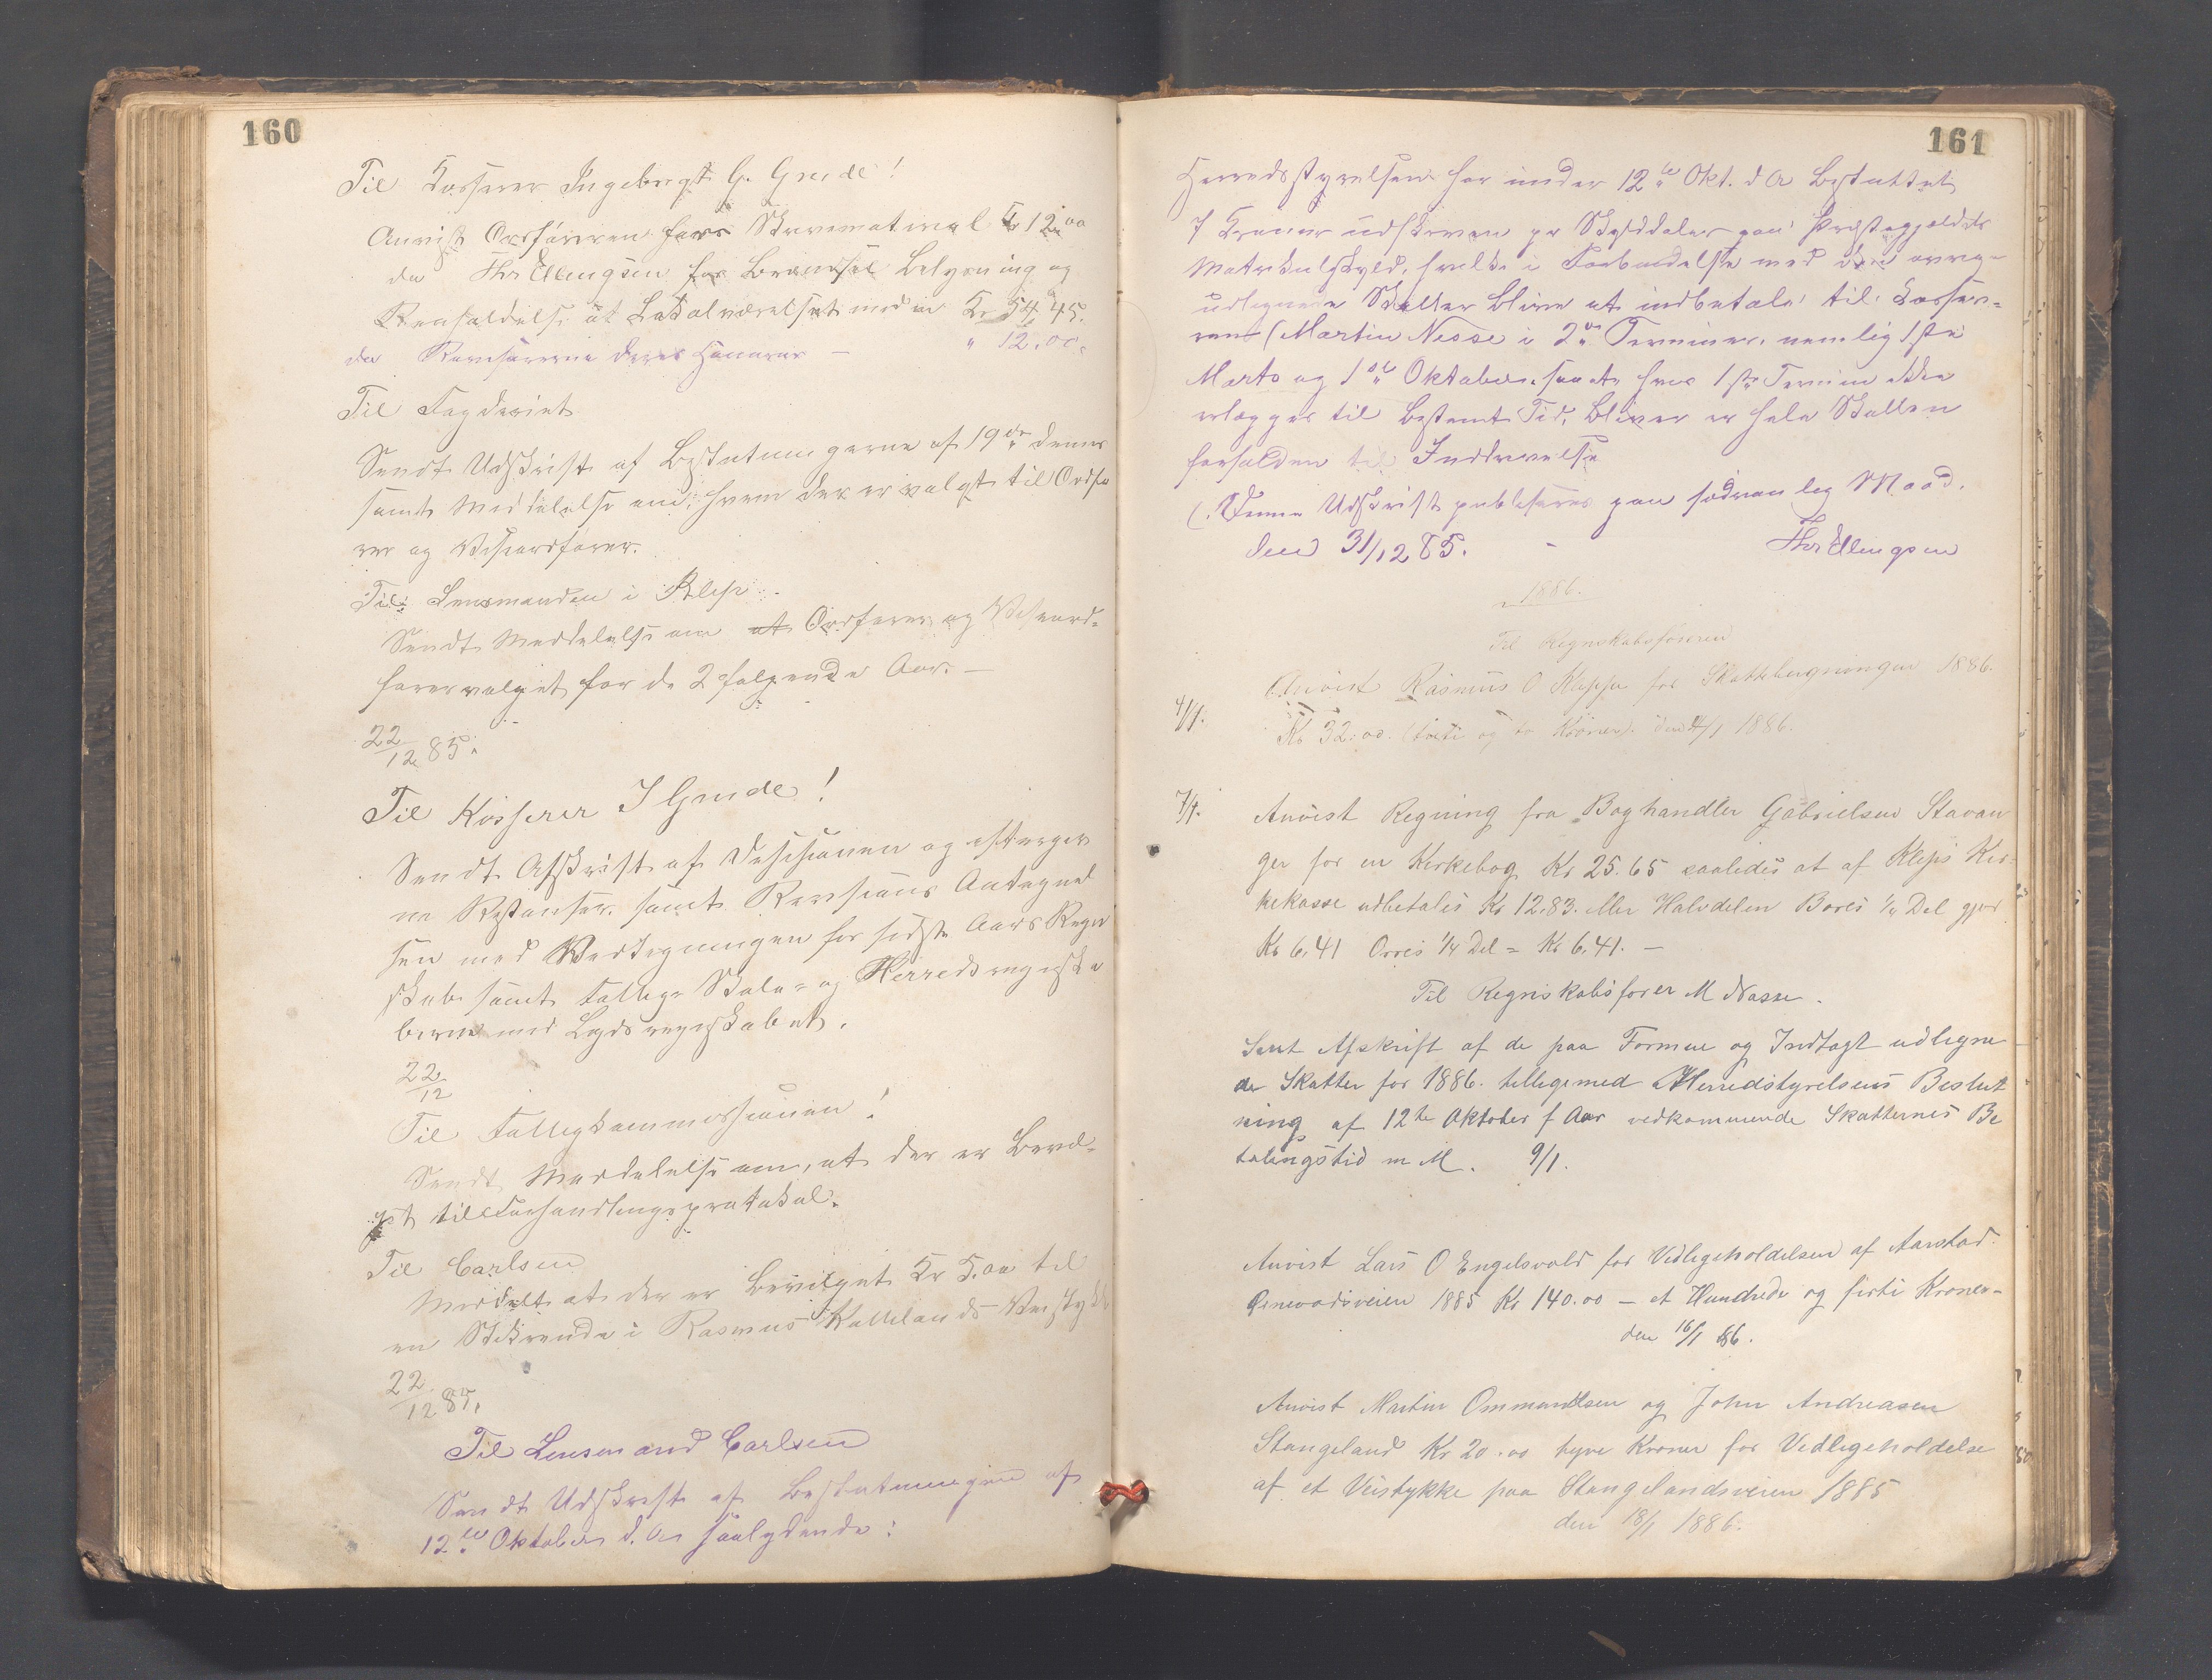 160
Til Kasserer Ingebregt G. Grude!
Anvist Ordføreren for Skrivematerial Kr 12.00
do Thr Ellingsen for Brændsel Belysning og
Renholdelse at Lokalværelset med in Kr 54,45.
do Revisorerne deres Honorar — " 12.00.
Til Fogderiet
Sendt Udskrift af Beslutningerne af 19de dennes
samt Meddelelse om, hvem der er valgt til Ordfø
rer og Viseordfører.
Til Lensmanden i Klep.
Sendt Meddelelse om at Ordfører og Viseord-
førervalget for de 2 følgende Aar. —
22/12 85.
Til Kasserer I Grude!
Sendt Afskrift af Desisionen og efterger
ne Restanser, samt Revisions Antegnel
sen med Vedtegningen for sidste Aars Regn
skab samt Fattig- Skole- og Herredsregnska
berne med Legdsregnskabet.
22/12
Til Fattigkommissionen!
Sendt Meddelelse om, at der er Bevil-
get til Forhandlingsprotokol.
Til Carlsen
Meddelt at der er Bevilget Kr 5.00 til
en Stikrende i Rasmus Kallelands Veistykke
22/12 85.
Til Lensmand Carlsen
Sendt Udskrift af Beslutningen af
12te Oktober d. Aa saalydende:
161
Herredsstyrelsen har under 12te Okt. d A Besluttet
7 Kroner udskreven pr Skylddaler paa Prestegjeldets
Matrikulskyld, hvilke i Forbindelse med de øvrig-
udlignede Skatter bliver at indbetale til Kasser-
ren (Martin Nesse i 2de Terminer, nemlig 1ste
Marts og 1ste Oktober, samt hvis 1ste Termin ikke
erlægges til Bestemt Tid, bliver er hele Skatten
forfalden til Inddrivelse
(. Denne Udskrift publiseres paa sædvanlig Maad.
den 31/12 85. - Thr Ellingsen
1886.
Til Regnskabsføreren
4/1. Anvist Rasmus O Kleppe for Skatteligningen 1886.
Kr 32.00. (treti og to Kroner). den 4/1 1886.
7/1. Anvist Regning fra Boghandler Gabrielsen Stavan
ger for en Kirkebog Kr 25.65 saaledes at af Kleps Kir-
kekasse udbetales Kr 12.83. eller Halvdelen Bores 1/4 Del gjør
Kr 6,41 Orres 1/4 Del = Kr 6,41. —
Til Regnskabsfører M Nasse.
Sent Afskrift af de paa Formue og Indtægt udligne
de Skatter for 1886. tilligemed Herredstyrelsens Beslut
ning af 12te Oktober f Aar vedkommende Skatternes Be
talingstid m M. 9/1.
Anvist Lars O Engelsvold for Vedligeholdelsen af Aarstad-
veien 1885 Kr 140.00 — et Hundrede og firti Kroner-
den 16/1 86.
Anvist Martin Ommundsen og John Andreasen
Stangeland Kr 20.00 tyve Kroner for Vedligeholdelse
af et Veistykke paa Stangelandsveien 1885
den 18/1 1886.